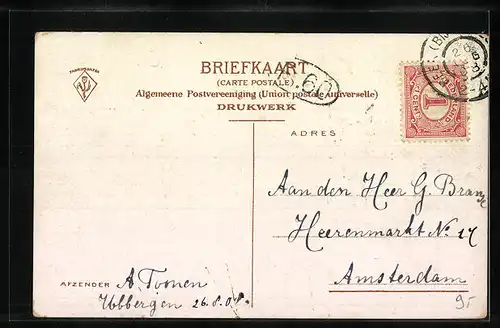 BRIEFKAART
(CARTE POSTALE)
Algemeene Postvereeniging (Union postale universelle)
DRUKWERK
ADRES
Aan den Heer G. Branz
Heerenmarkt No. 17
Amsterdam
AFZENDER A Toonen
Ubbergen 26.8.08.
1
CENT
9-